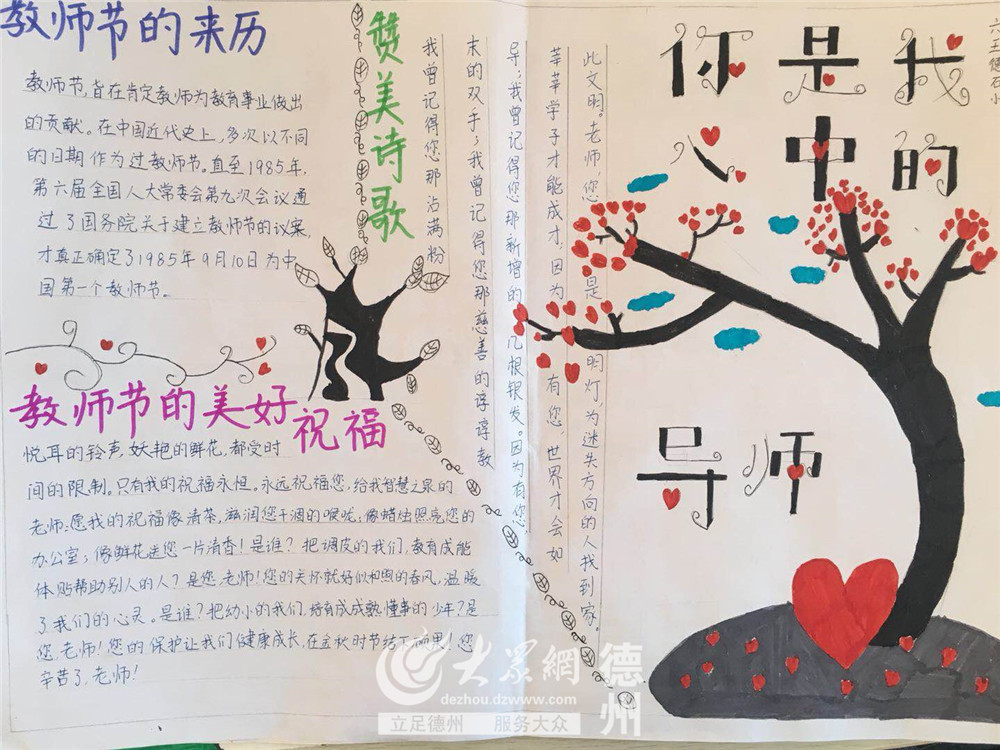 教师节的来历
教师节,旨在肯定教师为教育事业做出
的贡献。在中国近代史上,多次以不同
的日期作为过教师节。直至1985年,
第六届全国人大常委会第九次会议通
过了国务院关于建立教师节的议案,
才真正确定了1985年9月10日为中
国第一个教师节。
教师节的美好祝福
悦耳的铃声,妖艳的鲜花,都受时
间的限制。只有我的祝福永恒。永远祝福您,给我智慧之泉的
老师:愿我的祝福像清茶,滋润您干涸的喉咙;像蜡烛照亮您的
办公室;像鲜花送您一片清香!是谁?把调皮的我们,教育成能
体贴帮助别人的人?是您,老师!您的关怀就好似和煦的春风,温暖
了我们的心灵。是谁?把幼小的我们,培育成成熟懂事的少年?是
您,老师!您的保护让我们健康成长,在金秋时节结下硕果,您
辛苦了,老师!
赞美诗歌
我曾记得您那沾满粉
末的双手;我曾记得您那慈善的谆谆教
导;我曾记得您那新增的几根银发。因为有您,
莘莘学子才能成才;因为有您,世界才会如
此文明。老师,您是明灯,为迷失方向的人找到家。
你是我
心中的
导师
六五德石小
大众網 德州
dezhou.dzwww.com
立足德州 服务大众